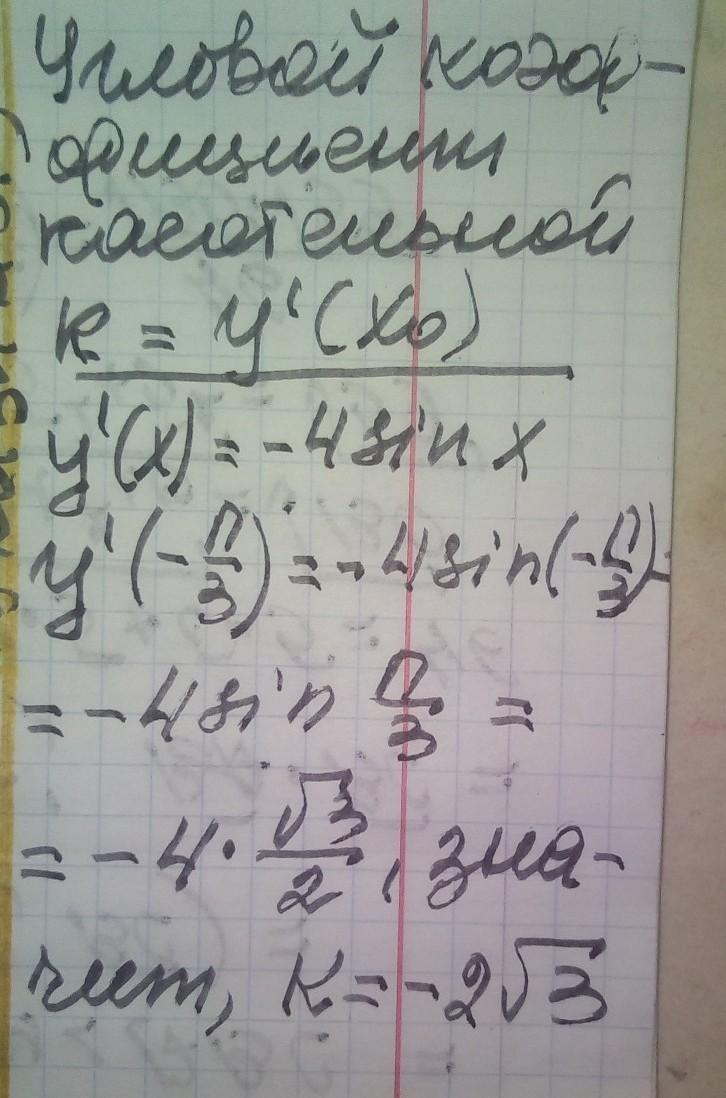 Угловой коэф-
фициент
касательной
k = y'(x₀)
y'(x) = -4 sin x
y'(-π/3) = -4 sin(-π/3) =
= -4 sin π/3 =
= -4 · √3/2, зна-
чит, K = -2√3